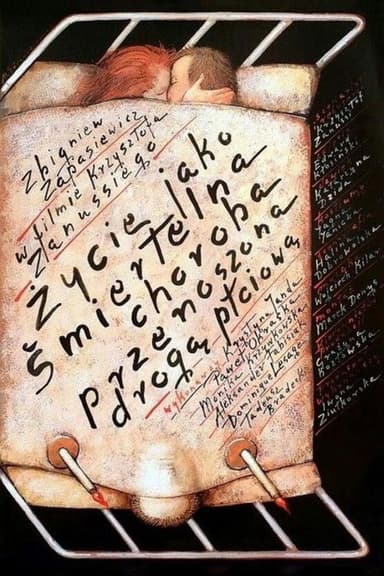 Zbigniew
Zapasiewicz
w filmie Krzysztofa
Zanussiego
Życie jako
śmiertelna
choroba
przenoszona
drogą płciową
Krystyna Janda
Paweł Okraska
Monika Krzywkowska
Aleksander Fabisiak
Dominique Lesage
Tadeusz
Bradecki
Krzysztof
Zanussi
Edward
Kłosiński
Halina
Dobrowolska
Wojciech Kilar
Marek Denys
Grażyna
Kozłowska
Iwona
Ziułkowska